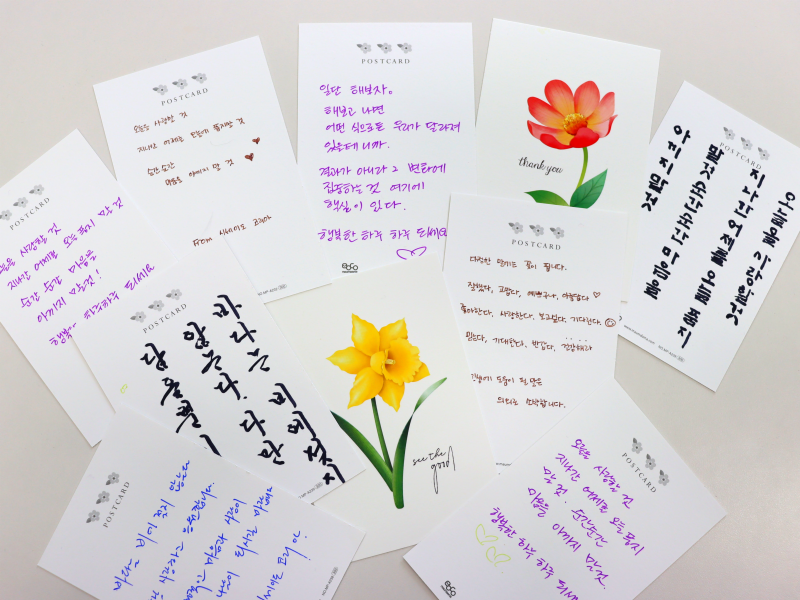 POSTCARD
오늘을 사랑할 것
지나간 어제로 오늘에 품지말 것
순간순간
마음을 아끼지 말 것
From 시세이도 코리아
POSTCARD
일단 해보자.
해보고 나면
어떤 식으로든 우리가 달라져
있을테니까.
결과가 아니라 그 변화에
집중하는 것 여기에
핵심이 있다.
행복한 하루 하루 되세요
thank you
POSTCARD
오늘을 사랑할것
지나간 어제를 오늘 품지
말것 순간순간 마음을
아끼지말것
POSTCARD
사랑할 것
지나간 어제로 오늘 품지 말 것
순간 순간 마음을
아끼지 말것!
하루하루 되세요
POSTCARD
바다는 비에 젖지
않는다. 다만
담을 뿐
see the
good
POSTCARD
다정한 말에는 꽃이 핍니다.
잘했다, 고맙다, 예쁘구나, 아름답다
좋아한다, 사랑한다, 보고싶다, 기다린다.
믿는다, 기대한다, 반갑다, 건강해라
도움이 될 말은
의외로 소박합니다.
POSTCARD
바다는 비에 젖지 않는다
사랑하고 응원합니다.
마음과 사랑이
되시길
코리아
POSTCARD
오늘을 사랑할 것
지나간 어제로 오늘 품지
말 것. 순간순간
마음을 아끼지 말것.
행복한 하루 하루 되세요